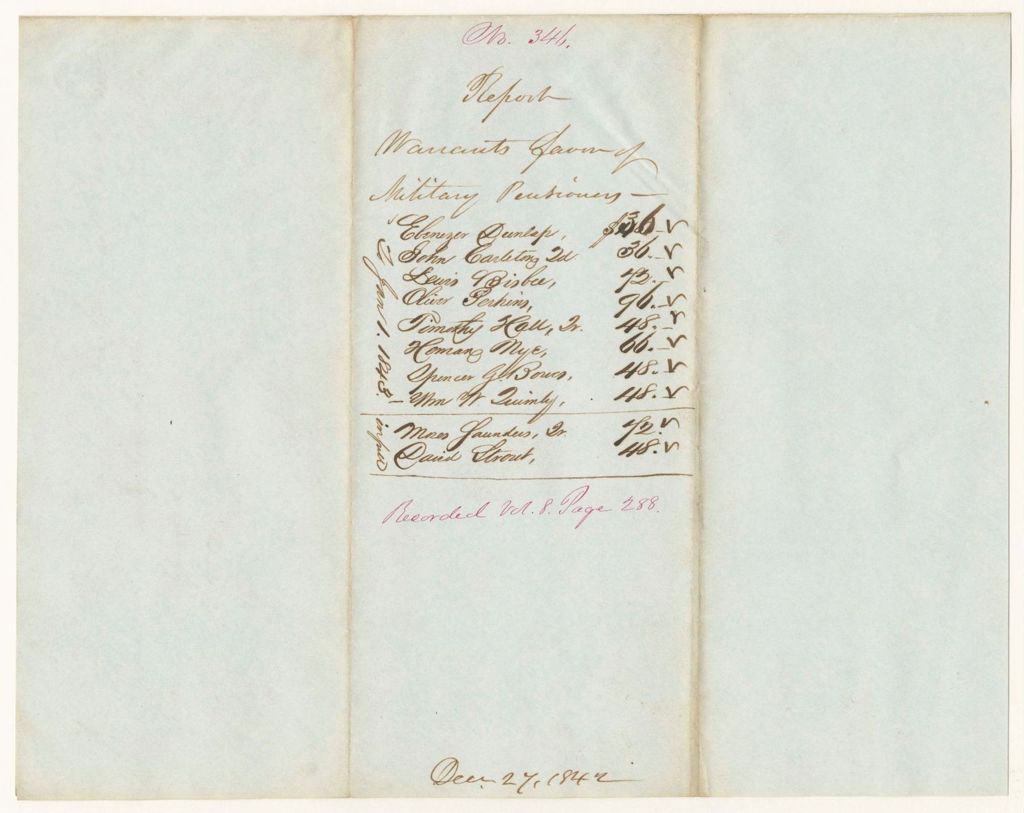 No. 346.
Report
Warrants favor of
Military Pensioners —
Ebenezer Dunlap, $36 -
John Carleton, 2d 36. -
Lewis Bisbee, 42. -
Oliver Perkins, 96. -
Timothy Hall, Jr. 48. -
Homan Nye, 66. -
Spencer G. Bowes, 48. -
Wm W Quimby, 48. -
to Jan 1. 1843.
Moses Saunders, Jr. 72.
David Strout, 48.
in full
Recorded Vol. 8. Page 288.
Decr 27, 1842